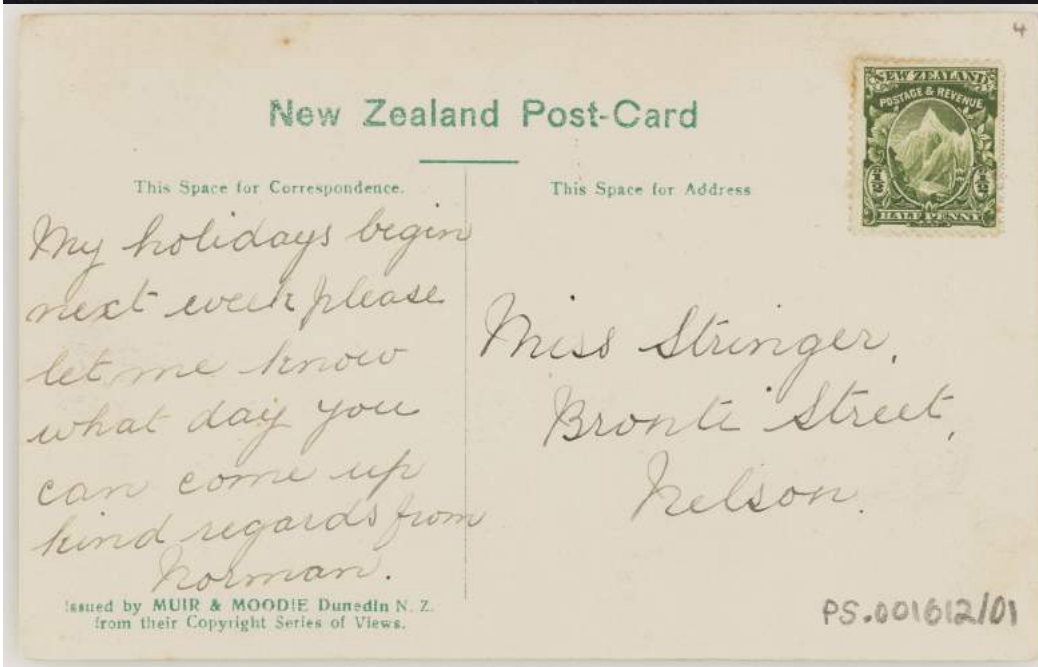 4
New Zealand Post-Card
NEW ZEALAND
POSTAGE & REVENUE
1/2
1/2
HALF PENNY
This Space for Correspondence.
My holidays begin
next week please
let me know
what day you
can come up
kind regards from
Norman.
Issued by MUIR & MOODIE Dunedin N. Z.
from their Copyright Series of Views.
This Space for Address
Miss Stringer,
Bronti Street,
Nelson.
PS.001612/01